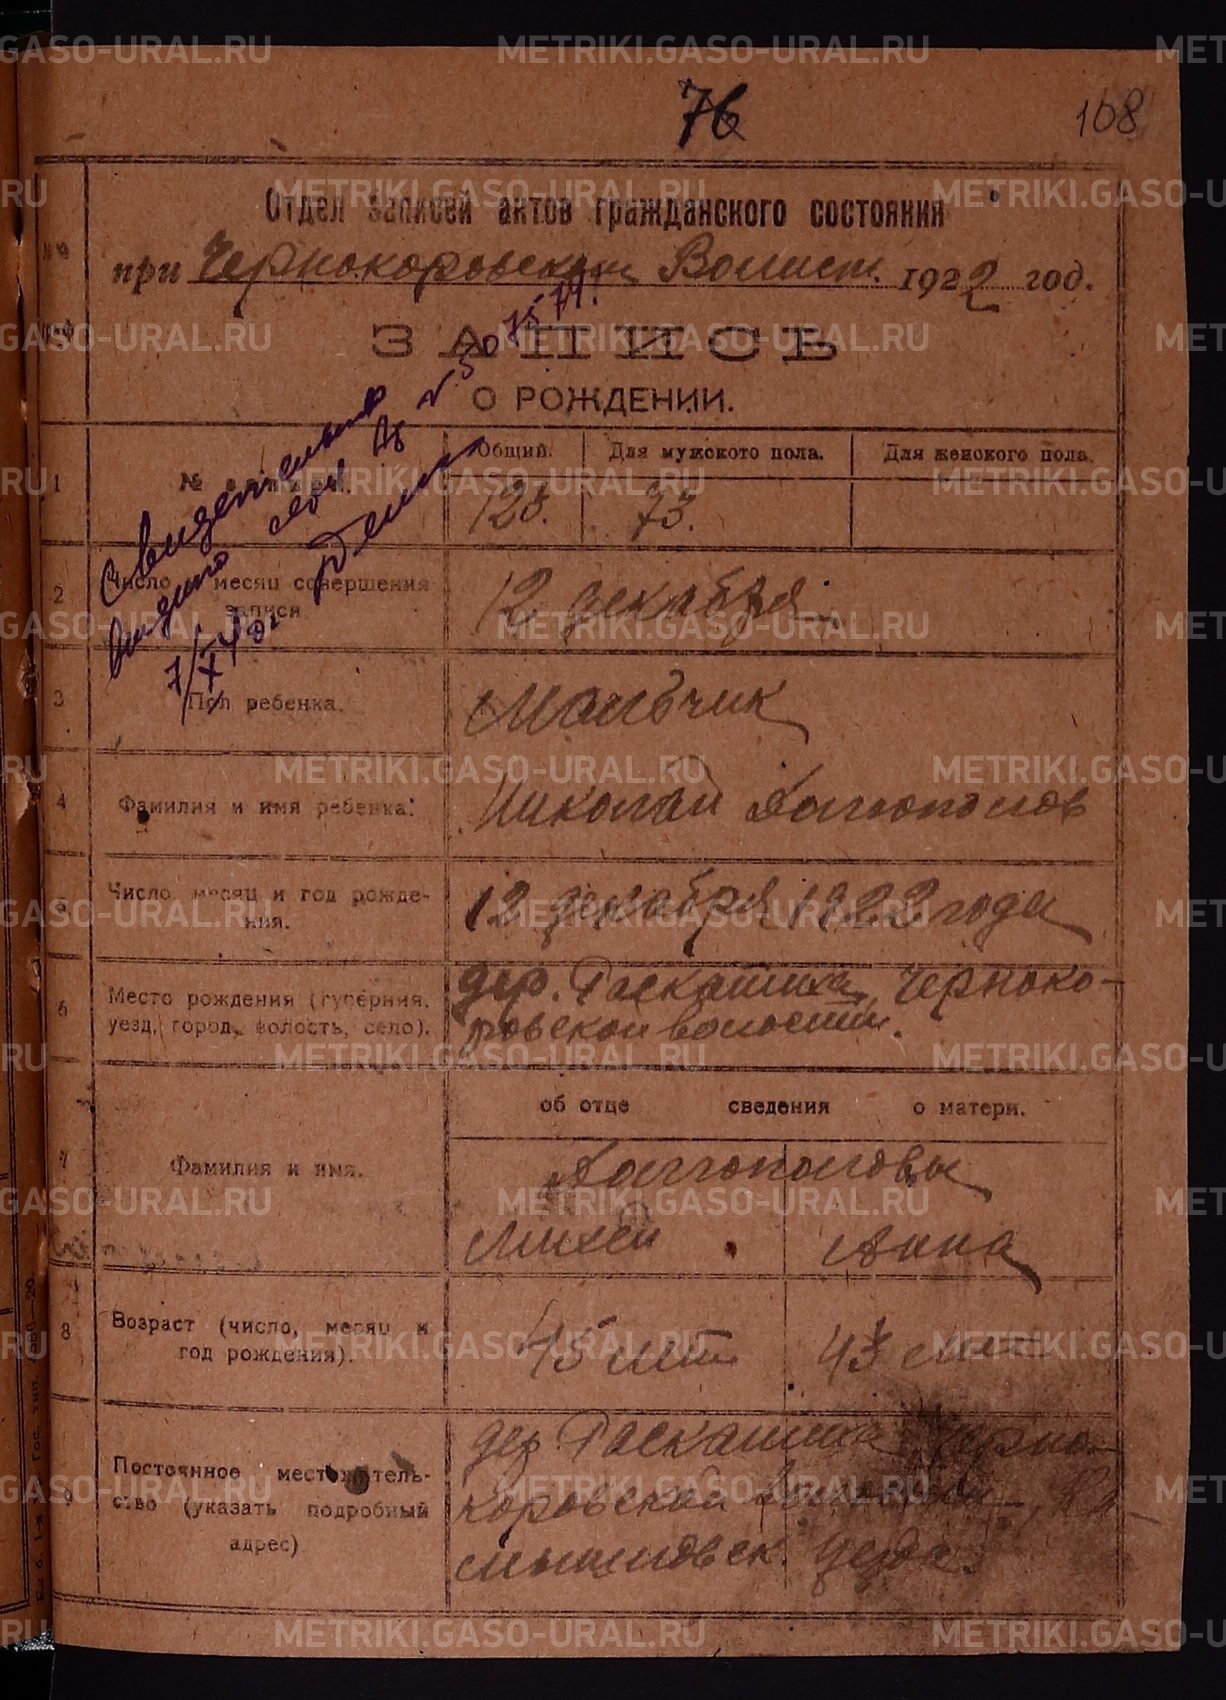 76
108
Отдел записей актов гражданского состояния
при Чернокоровском Волист. 1922 год.
ЗАПИСЬ
О РОЖДЕНИИ.
Свидетельство
выдано
7/XI
1
№ записи.
Общий.
Для мужского пола.
Для женского пола.
123.
73.
2
Число и месяц совершения
записи
12 декабря
3
Пол ребенка.
Мальчик
4
Фамилия и имя ребенка.
Николай Долгополов
5
Число, месяц и год рожде-
ния.
12 декабря 1922 года
6
Место рождения (губерния,
уезд, город, волость, село).
дер. Раскатиха, Черноко-
ровской волости.
об отце сведения о матери.
7
Фамилия и имя.
Долгополовы
Михей
Анна
8
Возраст (число, месяц и
год рождения).
45 лет
43 лет
9
Постоянное местожитель-
ство (указать подробный
адрес)
дер. Раскатиха Черно-
коровской волости, Ка-
мышловск. уезда.
METRIKI.GASO-URAL.RU